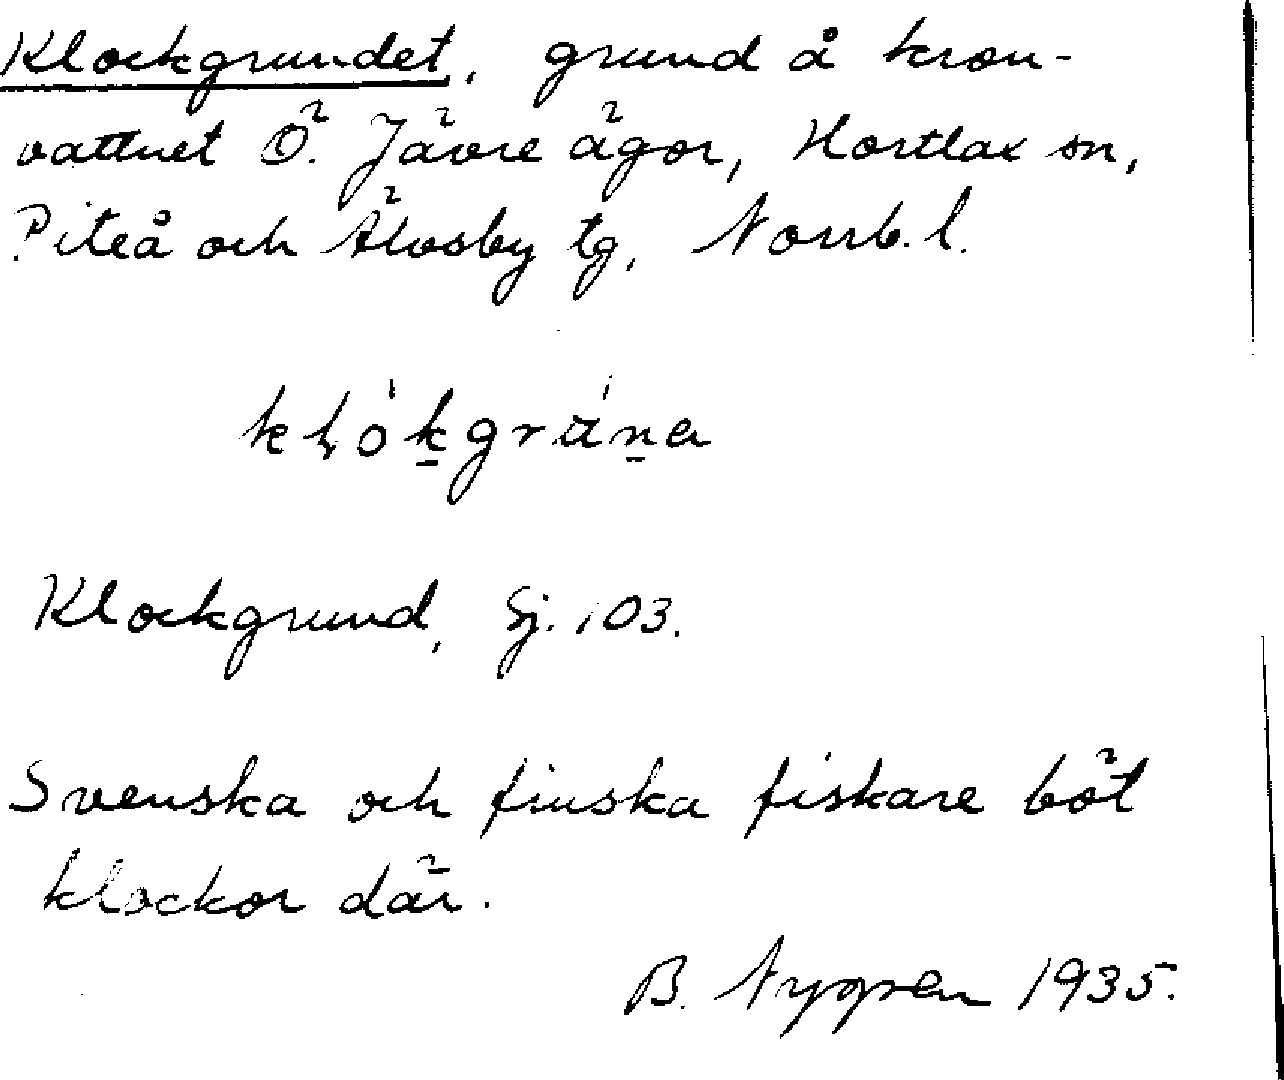 Klockgrundet, grund å kron-
vattnet Ö. Jävre ägor, Hortlax sn,
Piteå och Älvsby tg, Norrb. l.
Klockgrund, Sj. 103.
Svenska och finska fiskare böt
klockor där.
B. Nygren 1935.